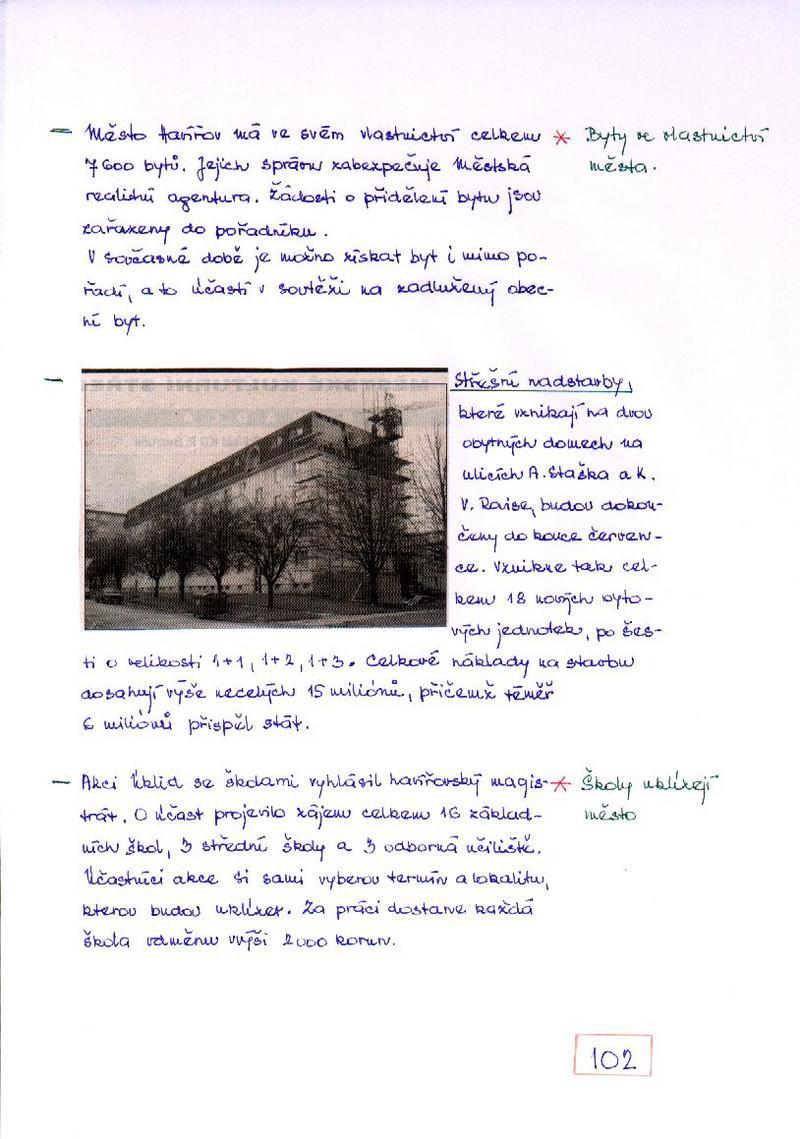 – Město Havířov má ve svém vlastnictví celkem * Byty ve vlastnictví
7 600 bytů. Jejich správu zabezpečuje Městská města.
realitní agentura. Žádosti o přidělení bytu jsou
zařazeny do pořadníku.
V současné době je možno získat byt i mimo po-
řadí, a to účastí v soutěži na zadlužený obec-
ní byt.
– Střešní nadstavby,
které vznikají na dvou
obytných domech na
ulicích A. Staška a K.
V. Raise, budou dokon-
čeny do konce červen-
ce. Vznikne tak cel-
kem 18 nových byto-
vých jednotek, po šes-
ti o velikosti 1+1, 1+2, 1+3. Celkové náklady na stavbu
dosahují výše necelých 15 miliónů, přičemž téměř
6 miliónů přispěl stát.
– Akci Úklid se školami vyhlásil havířovský magis- * Školy uklízejí
trát. O účast projevilo zájem celkem 16 základ- město
ních škol, 3 střední školy a 3 odborná učiliště.
Účastníci akce si sami vyberou termín a lokalitu,
kterou budou uklízet. Za práci dostane každá
škola odměnu výši 2000 korun.
102